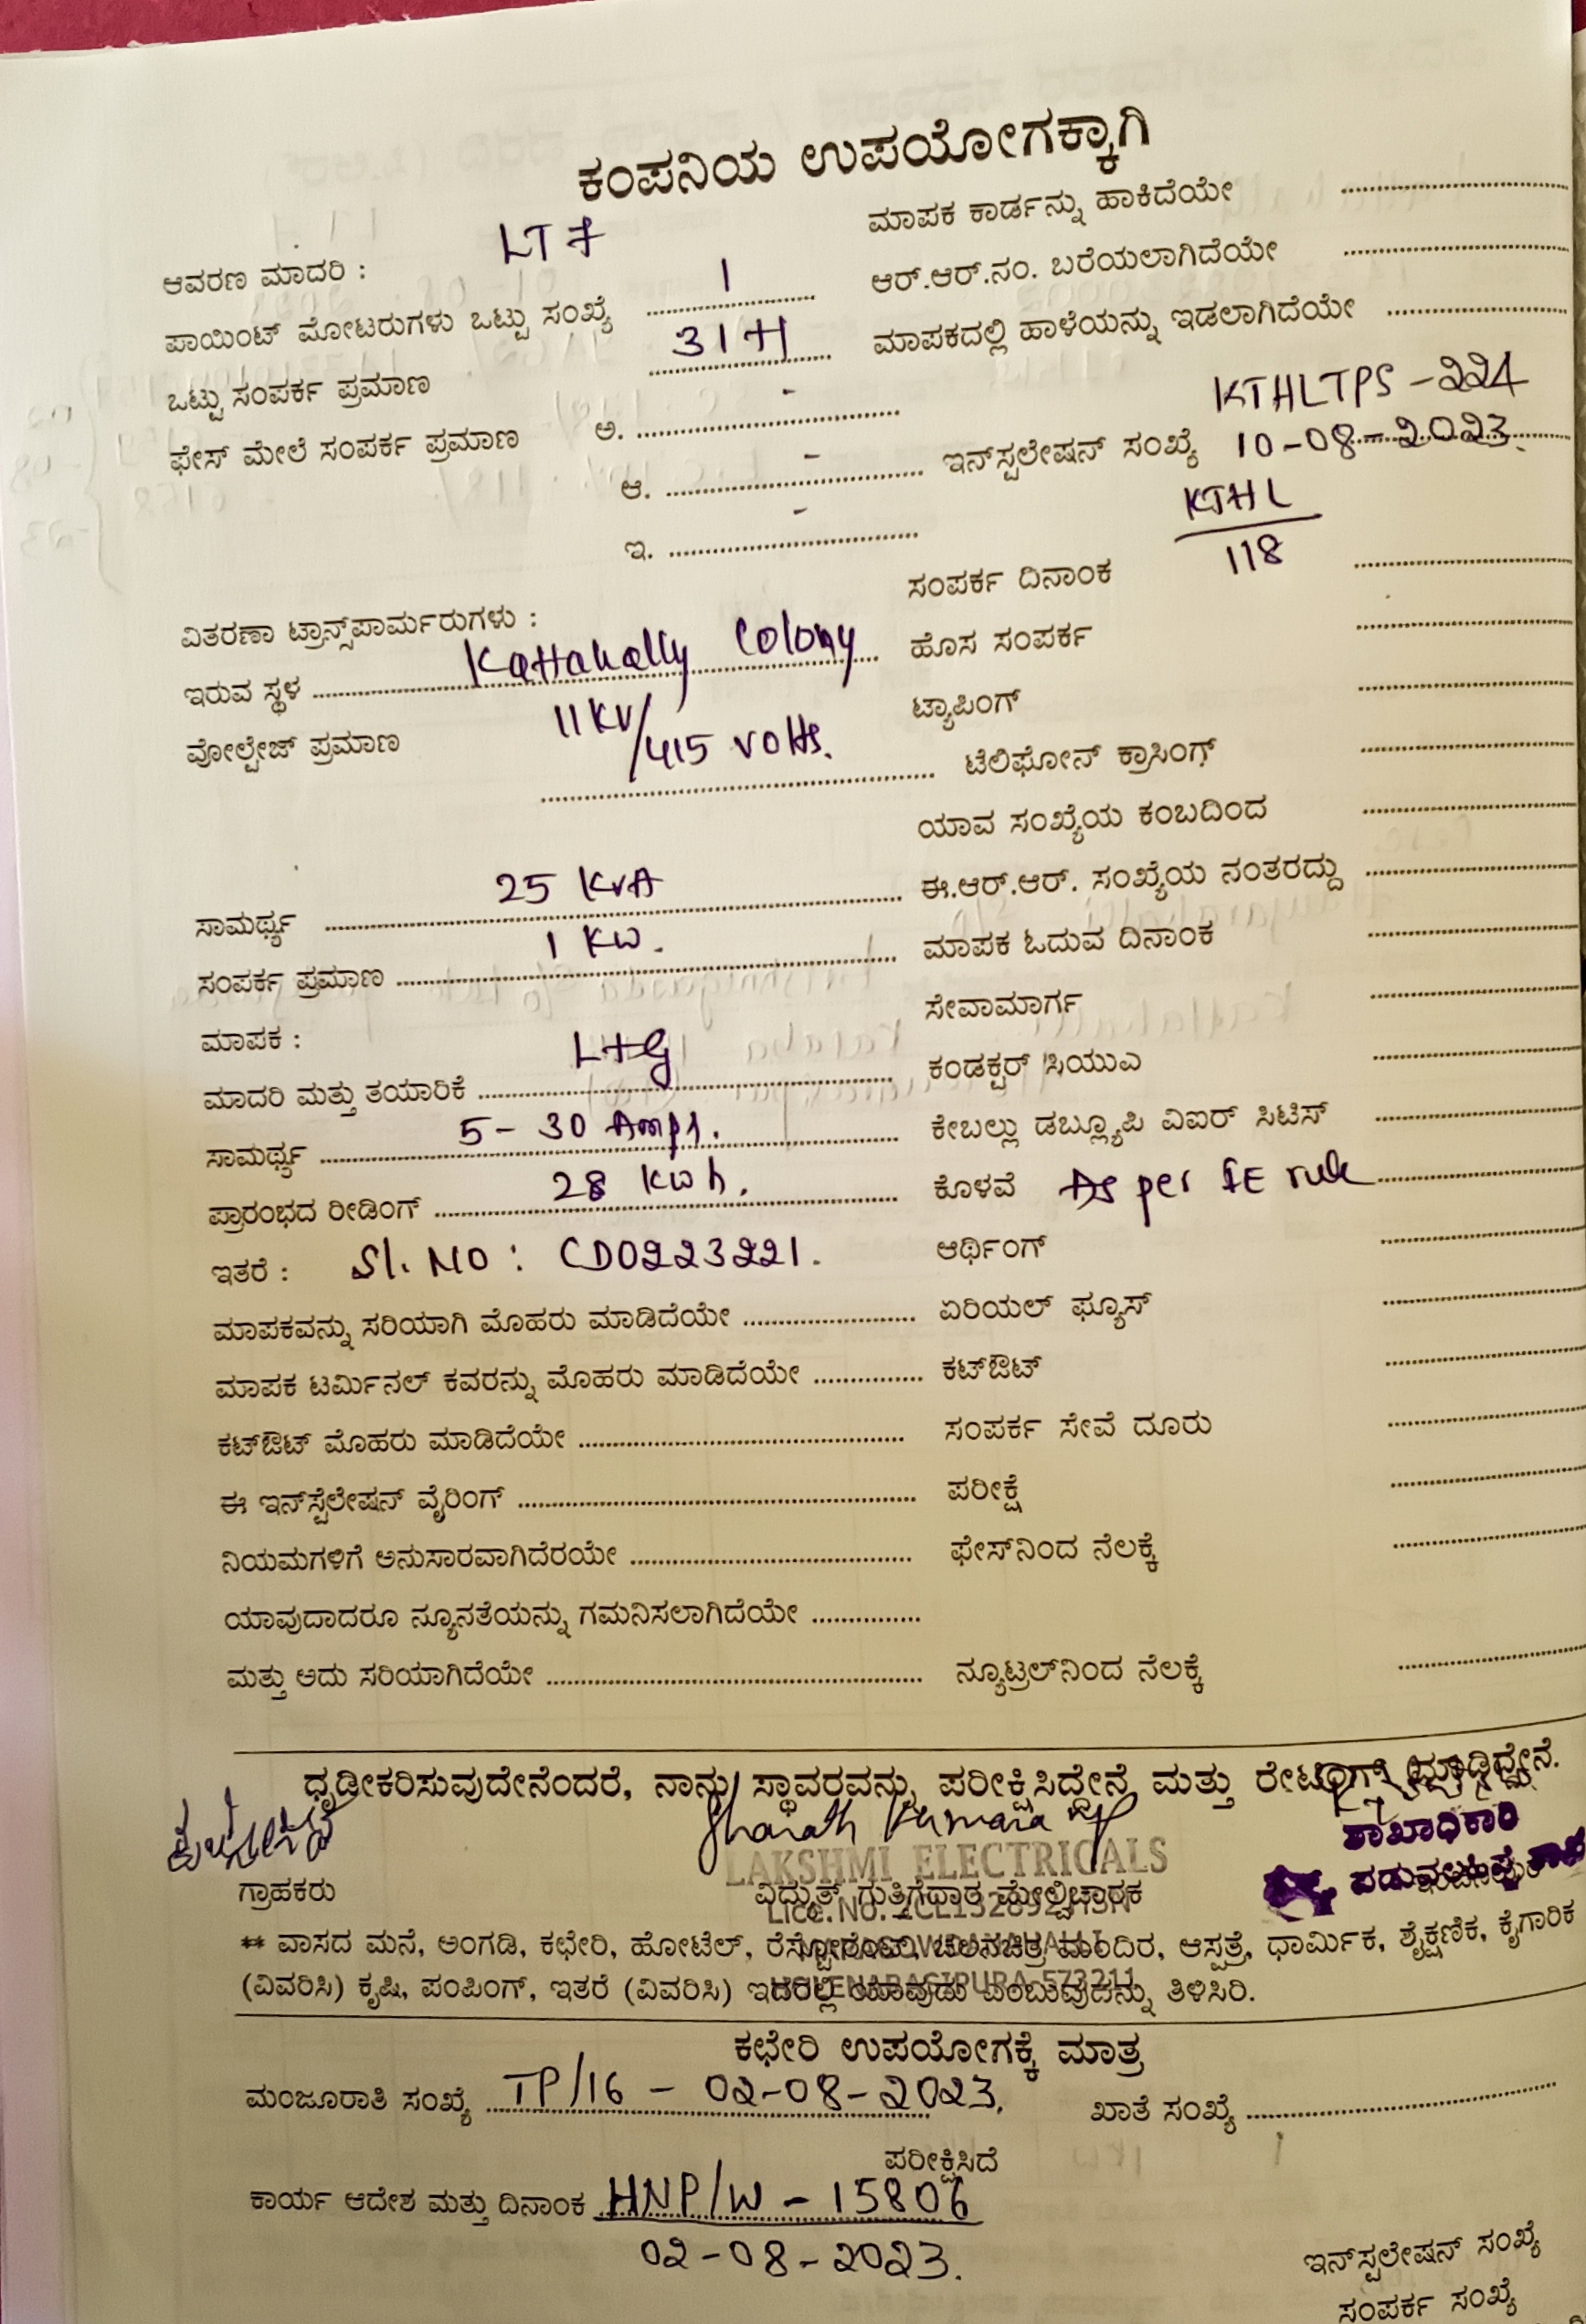 ಕಂಪನಿಯ ಉಪಯೋಗಕ್ಕಾಗಿ
ಆವರಣ ಮಾದರಿ : LT 7
ಪಾಯಿಂಟ್ ಮೋಟರುಗಳು ಒಟ್ಟು ಸಂಖ್ಯೆ 1
ಒಟ್ಟು ಸಂಪರ್ಕ ಪ್ರಮಾಣ
ಫೇಸ್ ಮೇಲೆ ಸಂಪರ್ಕ ಪ್ರಮಾಣ ಅ. -
ಆ. -
ಇ. -
ವಿತರಣಾ ಟ್ರಾನ್ಸ್‌ಪಾರ್ಮರುಗಳು :
ಇರುವ ಸ್ಥಳ Kattahally Colony
ವೋಲ್ಟೇಜ್ ಪ್ರಮಾಣ 11KV/415 Volts.
ಸಾಮರ್ಥ್ಯ 25 KVA
ಸಂಪರ್ಕ ಪ್ರಮಾಣ 1 KW.
ಮಾಪಕ :
ಮಾದರಿ ಮತ್ತು ತಯಾರಿಕೆ L+G
ಸಾಮರ್ಥ್ಯ 5-30 Amps.
ಪ್ರಾರಂಭದ ರೀಡಿಂಗ್ 28 KWh.
ಇತರೆ : Sl. No : CD0223221.
ಮಾಪಕವನ್ನು ಸರಿಯಾಗಿ ಮೊಹರು ಮಾಡಿದೆಯೇ
ಮಾಪಕ ಟರ್ಮಿನಲ್ ಕವರನ್ನು ಮೊಹರು ಮಾಡಿದೆಯೇ
ಕಟ್‌ಔಟ್ ಮೊಹರು ಮಾಡಿದೆಯೇ
ಈ ಇನ್‌ಸ್ಟೆಲೇಷನ್ ವೈರಿಂಗ್
ನಿಯಮಗಳಿಗೆ ಅನುಸಾರವಾಗಿದೆರಯೇ
ಯಾವುದಾದರೂ ನ್ಯೂನತೆಯನ್ನು ಗಮನಿಸಲಾಗಿದೆಯೇ
ಮತ್ತು ಅದು ಸರಿಯಾಗಿದೆಯೇ
ಮಾಪಕ ಕಾರ್ಡನ್ನು ಹಾಕಿದೆಯೇ
ಆರ್.ಆರ್.ನಂ. ಬರೆಯಲಾಗಿದೆಯೇ
ಮಾಪಕದಲ್ಲಿ ಹಾಳೆಯನ್ನು ಇಡಲಾಗಿದೆಯೇ
KTHLTPS - 224
ಇನ್‌ಸ್ಟಲೇಷನ್ ಸಂಖ್ಯೆ 10-08-2023.
KTHL
118
ಸಂಪರ್ಕ ದಿನಾಂಕ
ಹೊಸ ಸಂಪರ್ಕ
ಟ್ಯಾಪಿಂಗ್
ಟೆಲಿಫೋನ್ ಕ್ರಾಸಿಂಗ್
ಯಾವ ಸಂಖ್ಯೆಯ ಕಂಬದಿಂದ
ಈ.ಆರ್.ಆರ್. ಸಂಖ್ಯೆಯ ನಂತರದ್ದು
ಮಾಪಕ ಓದುವ ದಿನಾಂಕ
ಸೇವಾಮಾರ್ಗ
ಕಂಡಕ್ಟರ್ ಸಿಯುವಿ
ಕೇಬಲ್ಲು ಡಬ್ಲ್ಯೂಪಿ ವಿಐರ್ ಸಿಟಿಸ್
ಕೊಳವೆ As per IE rule
ಆರ್ಥಿಂಗ್
ಏರಿಯಲ್ ಫ್ಯೂಸ್
ಕಟ್‌ಔಟ್
ಸಂಪರ್ಕ ಸೇವೆ ದೂರು
ಪರೀಕ್ಷೆ
ಫೇಸ್‌ನಿಂದ ನೆಲಕ್ಕೆ
ನ್ಯೂಟ್ರಲ್‌ನಿಂದ ನೆಲಕ್ಕೆ
ಧೃಡೀಕರಿಸುವುದೇನೆಂದರೆ, ನಾನು ಸ್ಥಾವರವನ್ನು ಪರೀಕ್ಷಿಸಿದ್ದೇನೆ ಮತ್ತು ರೇಟಿಂಗ್ ಮಾಡಿದ್ದೇನೆ.
Sharath Kumara
ಶಾಖಾಧಿಕಾರಿ
LAKSHMI ELECTRICALS
ಗ್ರಾಹಕರು ವಿದ್ಯುತ್ ಗುತ್ತಿಗೆದಾರ ಮೇಲ್ವಿಚಾರಕ
** ವಾಸದ ಮನೆ, ಅಂಗಡಿ, ಕಛೇರಿ, ಹೋಟೆಲ್, ರೆಸ್ಟೋರೆಂಟ್, ಚಲನಚಿತ್ರ ಮಂದಿರ, ಆಸ್ಪತ್ರೆ, ಧಾರ್ಮಿಕ, ಶೈಕ್ಷಣಿಕ, ಕೈಗಾರಿಕ
(ವಿವರಿಸಿ) ಕೃಷಿ, ಪಂಪಿಂಗ್, ಇತರೆ (ವಿವರಿಸಿ) ಇದರಲ್ಲಿ ಯಾವುದು ಎಂಬುವುದನ್ನು ತಿಳಿಸಿರಿ.
ಕಛೇರಿ ಉಪಯೋಗಕ್ಕೆ ಮಾತ್ರ
ಮಂಜೂರಾತಿ ಸಂಖ್ಯೆ TP/16 - 02-08-2023. ಖಾತೆ ಸಂಖ್ಯೆ
ಪರೀಕ್ಷಿಸಿದೆ
ಕಾರ್ಯ ಆದೇಶ ಮತ್ತು ದಿನಾಂಕ HNP/W - 15806
02-08-2023.
ಇನ್‌ಸ್ಟಲೇಷನ್ ಸಂಖ್ಯೆ
ಸಂಪರ್ಕ ಸಂಖ್ಯೆ